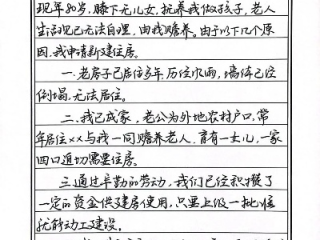 现年80岁,膝下无儿女,抚养我做孩子,老人
生活现已无法自理,由我赡养。由于以下几个原
因,我申请新建住房。
一.老房子已居住多年,历位巾雨,墙体已位
倒塌,无法居住。
二.我已成家,老公为外地农村户口,常
年居住××与我一同赡养老人,育有一女儿,一家
四口迫切需要住房。
三.通过辛勤的劳动,我们已位积攒了
一定的资金供建房使用,只要上级一批准
就能动工建设。